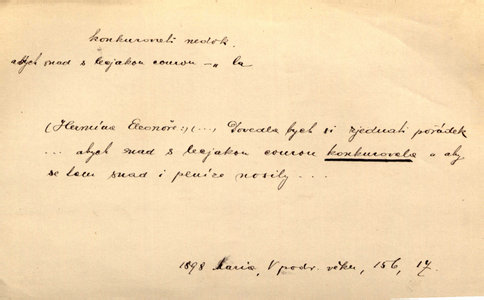 konkurovati nedok.
abych snad s lecjakou courou –„ la
(Hermína Eleonoře:) (..., Dovedla bych si zjednati pořádek
... abych snad s lecjakou courou konkurovala a aby
se tam snad i plnice nosily ...
1898 Maria, V podv. věku, 156, 17.